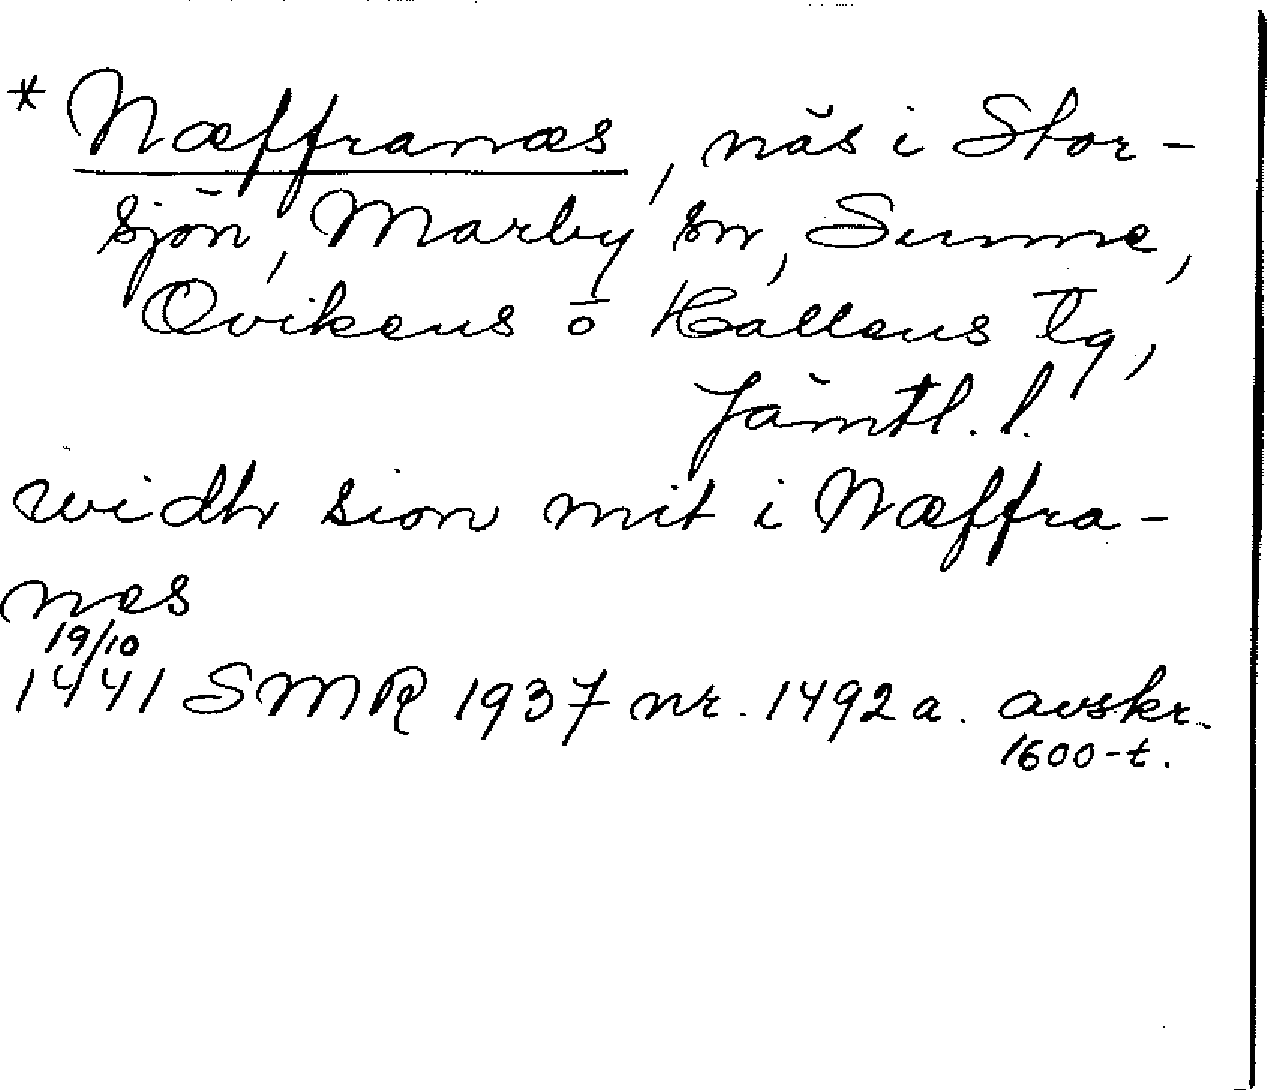 * Næffranæs, näs i Stor-
sjön, Marby sn, Sunne,
Ovikens o Hallens tg,
Jämtl. l.
widhr sion mit i Næffra-
næs
19/10
1441 SMR 1937 nr. 1492 a. avskr.
1600-t.